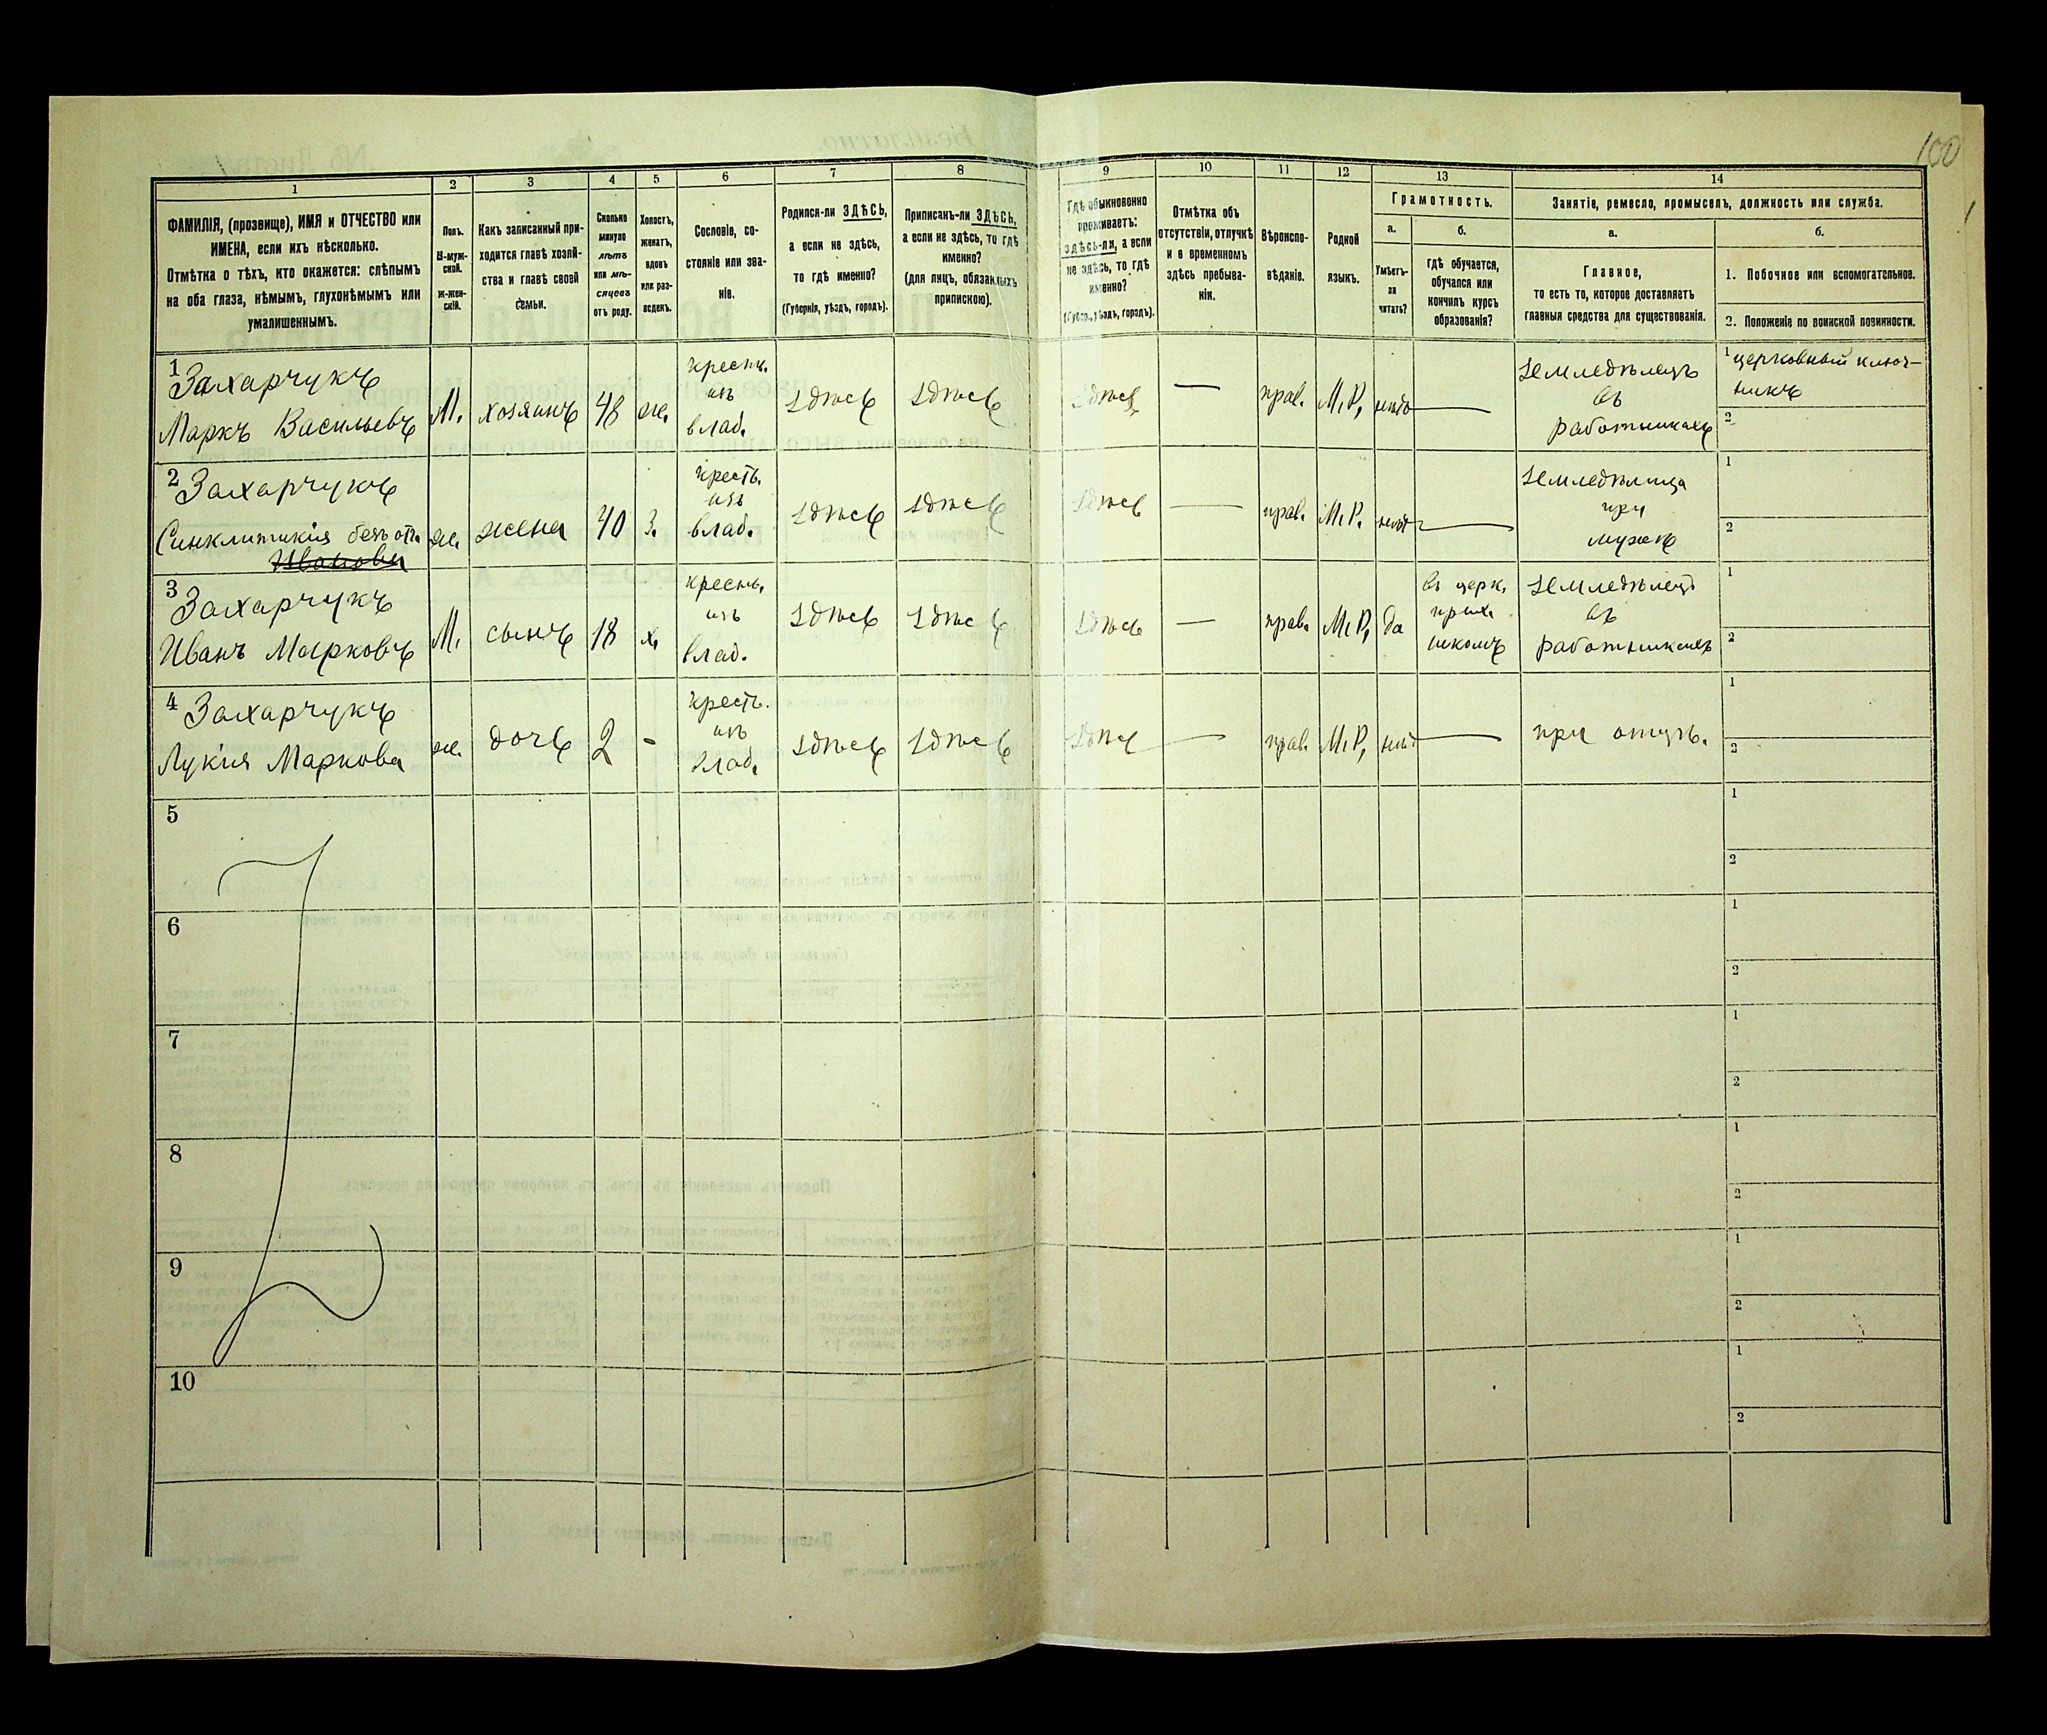 100
1
2
3
4
5
6
7
8
9
10
11
12
13
14
ФАМИЛІЯ, (прозвище), ИМЯ и ОТЧЕСТВО или
ИМЕНА, если ихъ нѣсколько.
Отмѣтка о тѣхъ, кто окажется: слѣпымъ
на оба глаза, нѣмымъ, глухонѣмымъ или
умалишеннымъ.
Полъ.
М-муж-
ской.
Ж-жен-
скій.
Какъ записанный при-
ходится главѣ хозяй-
ства и главѣ своей
семьи.
Сколько
минуло
лѣтъ
или мѣ-
сяцевъ
отъ роду.
Холостъ,
женатъ,
вдовъ
или раз-
веденъ.
Сословіе, со-
стояніе или зва-
ніе.
Родился-ли ЗДѢСЬ,
а если не здѣсь,
то гдѣ именно?
(Губернія, уѣздъ, городъ).
Приписанъ-ли ЗДѢСЬ,
а если не здѣсь, то гдѣ
именно?
(для лицъ, обязанныхъ
припискою).
Гдѣ обыкновенно
проживаетъ:
здѣсь-ли, а если
не здѣсь, то гдѣ
именно?
(Губер., уѣздъ, городъ).
Отмѣтка объ
отсутствіи, отлучкѣ
и о временномъ
здѣсь пребыва-
ніи.
Вѣроиспо-
вѣданіе.
Родной
языкъ.
Грамотность.
а.
Умѣетъ-
ли
читать?
б.
Гдѣ обучается,
обучался или
кончилъ курсъ
образованія?
Занятіе, ремесло, промыселъ, должность или служба.
а.
Главное,
то есть то, которое доставляетъ
главныя средства для существованія.
б.
1. Побочное или вспомогательное.
2. Положеніе по воинской повинности.
1 Захарчукъ
Маркъ Васильевъ
М.
хозяинъ
48
же.
крестн.
изъ
влад.
здѣсь
здѣсь
здѣсь
—
прав.
М.Р.
нѣтъ
—
земледѣлецъ
въ
работникахъ
1 церковный ключ-
никъ
2
2 Захарчукъ
Синклитикія безъ отч.
Иванова
же.
жена
40
з.
крест.
изъ
влад.
здѣсь
здѣсь
здѣсь
—
прав.
М.Р.
нѣтъ
—
земледѣлица
при
мужѣ
1
2
3 Захарчукъ
Иванъ Марковъ
М.
сынъ
18
х.
крестн.
изъ
влад.
здѣсь
здѣсь
здѣсь
—
прав.
М.Р.
да
въ церк.
прих.
школѣ
земледѣлецъ
въ
работникахъ
1
2
4 Захарчукъ
Лукія Маркова
же.
дочь
2
-
крест.
изъ
влад.
здѣсь
здѣсь
здѣсь
—
прав.
М.Р.
нѣтъ
—
при отцѣ.
1
2
5
1
2
6
1
2
7
1
2
8
1
2
9
1
2
10
1
2